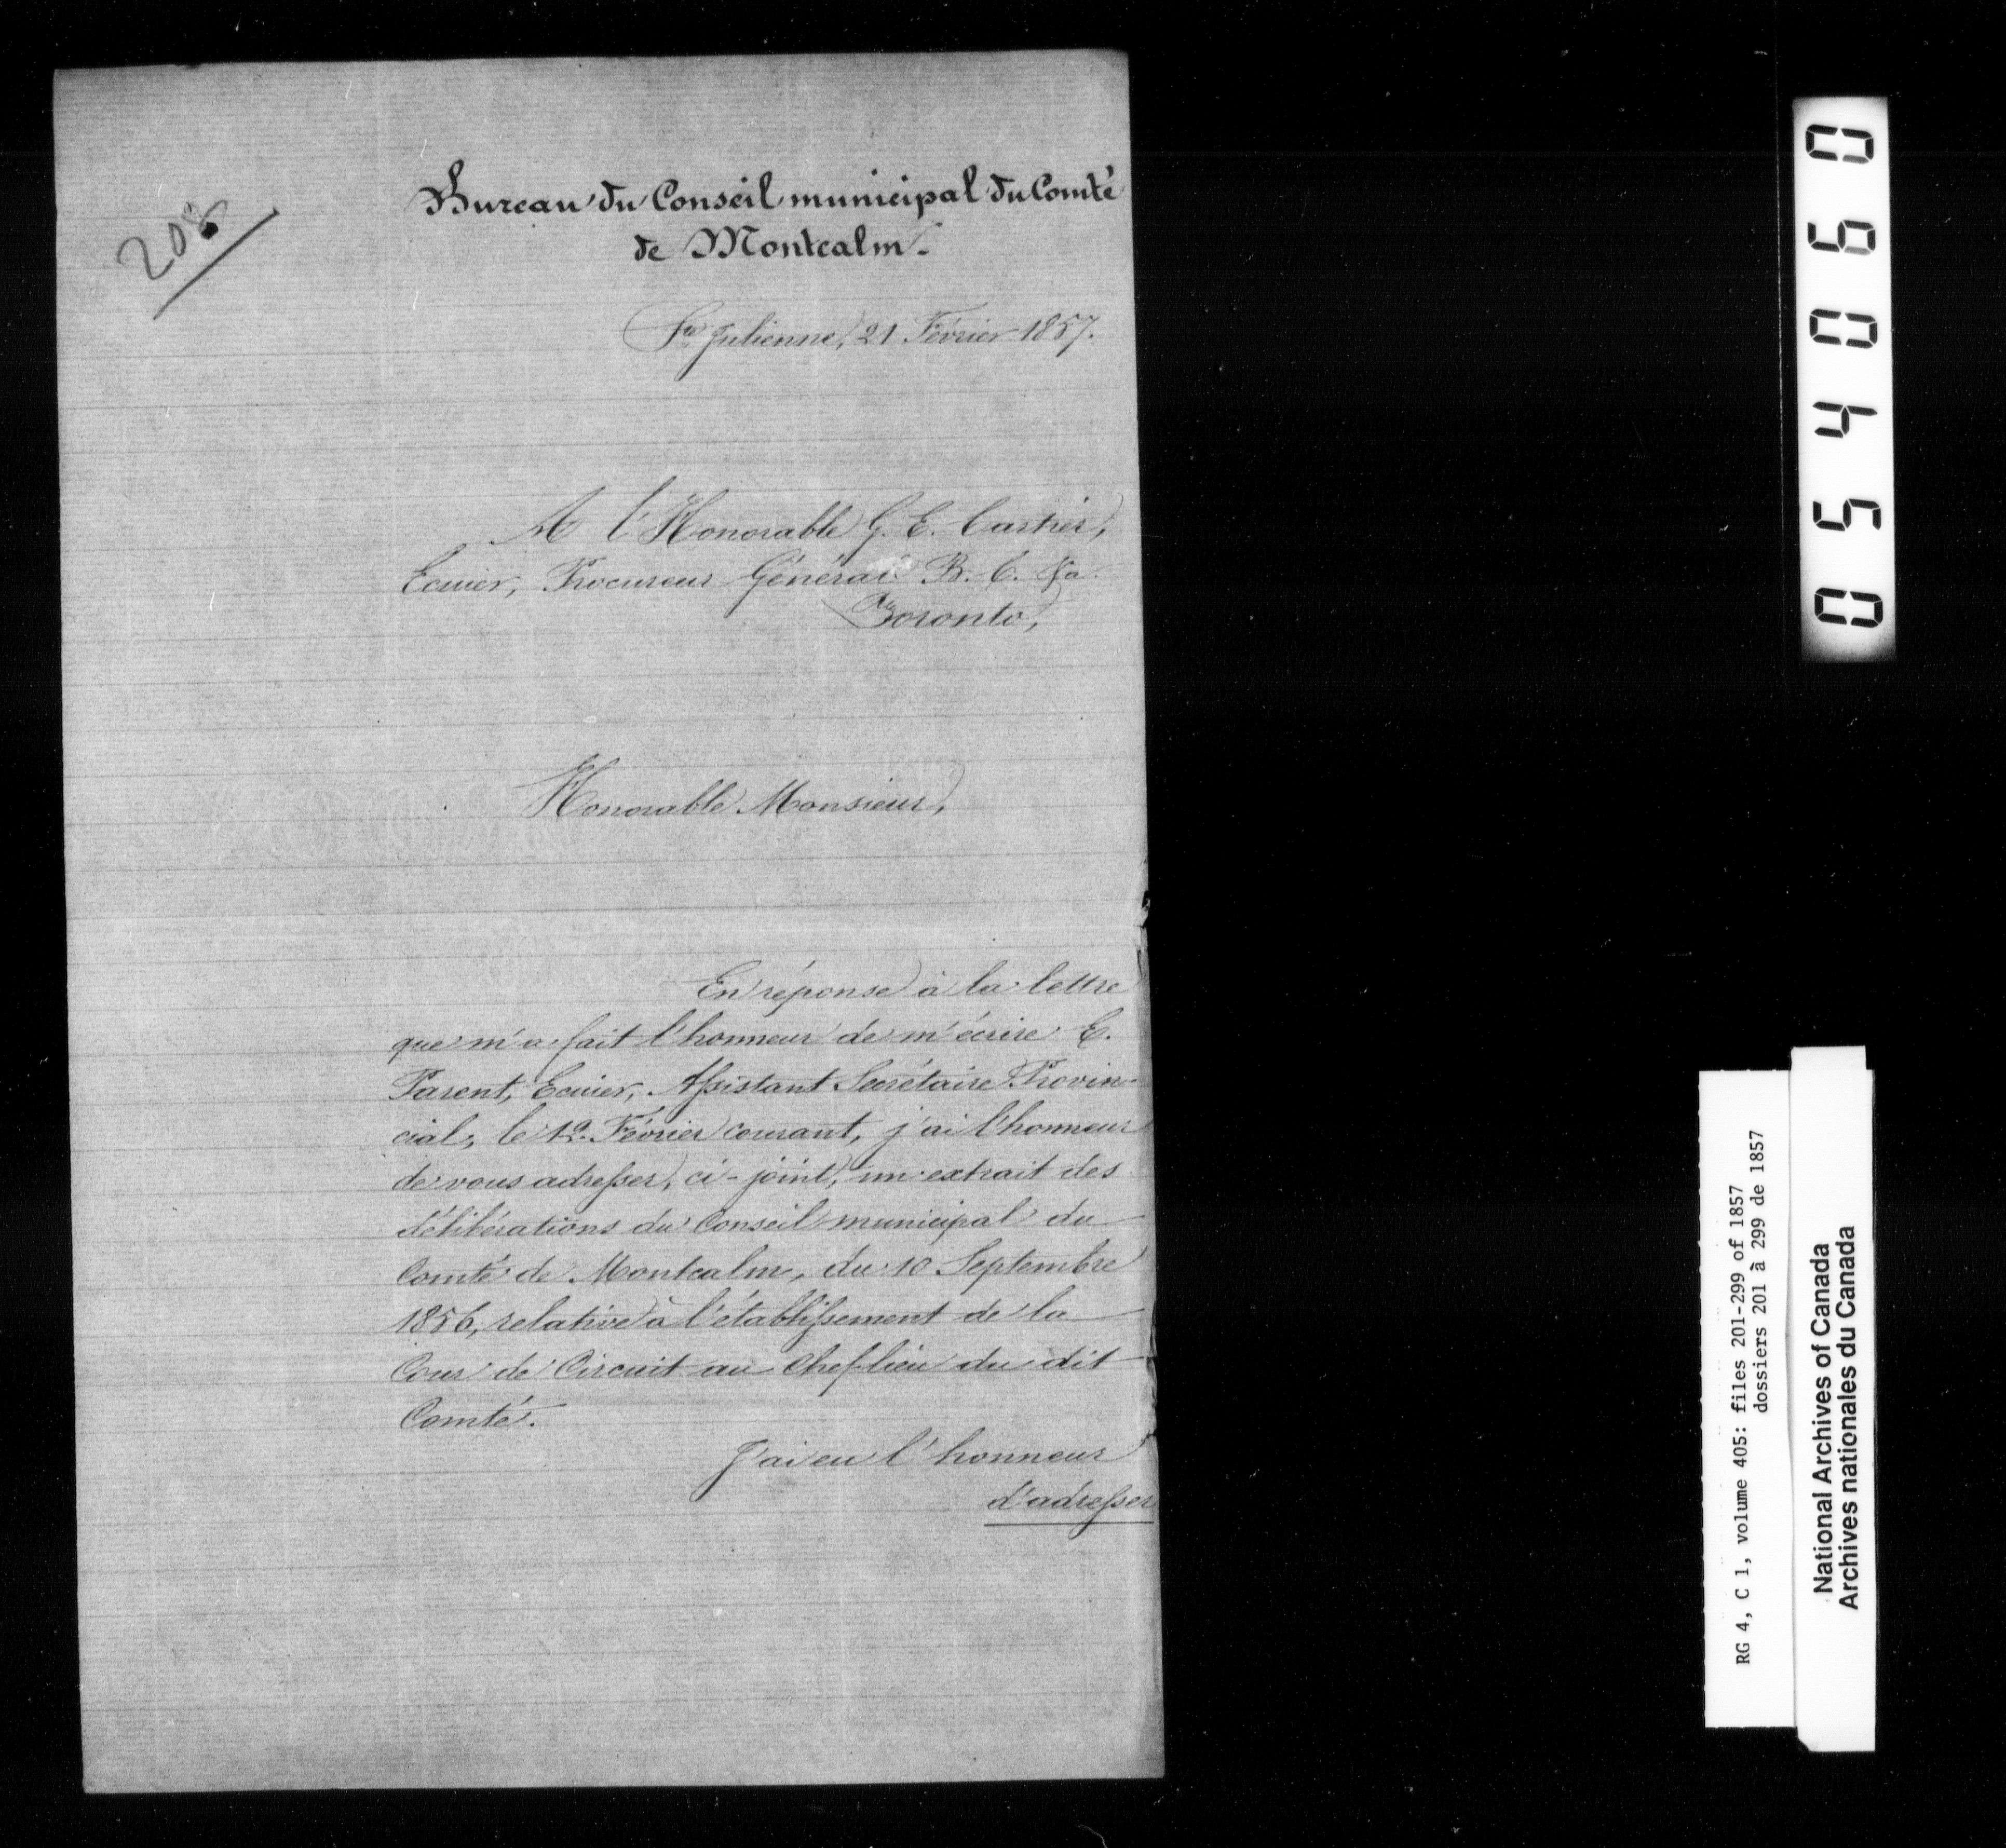 208
Bureau du Conseil municipal du Comté
de Montcalm.
Ste Julienne, 21 Février 1857.
A l'Honorable G. E. Cartier,
Ecuier, Procureur Général B. C. &a.
Toronto,
Honorable Monsieur,
En réponse à la lettre
que m'a fait l'honneur de m'écrire E.
Parent, Ecuier, Assistant Secrétaire Provin-
cial, le 12 Février courant, j'ai l'honneur
de vous adresser, ci-joint, un extrait des
délibérations du Conseil municipal du
Comté de Montcalm, du 10 Septembre
1856, relative à l'établissement de la
Cour de Circuit au Cheflieu du dit
Comté.
J'ai eu l'honneur
d'adresser
054060
RG 4, C 1, volume 405: files 201-299 of 1857
dossiers 201 à 299 de 1857
National Archives of Canada
Archives nationales du Canada